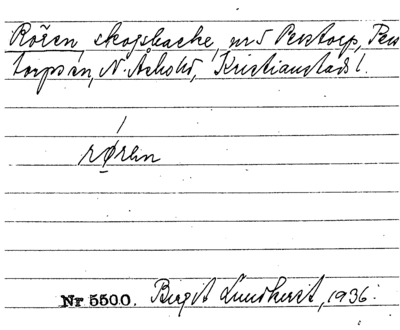 Rören, skogsbacke, nr 5 Perstorp, Pers
torps sn, N. Åsbo hd, Kristianstads l.
røren
Nr 5500. Birgit Lundkvist, 1936.